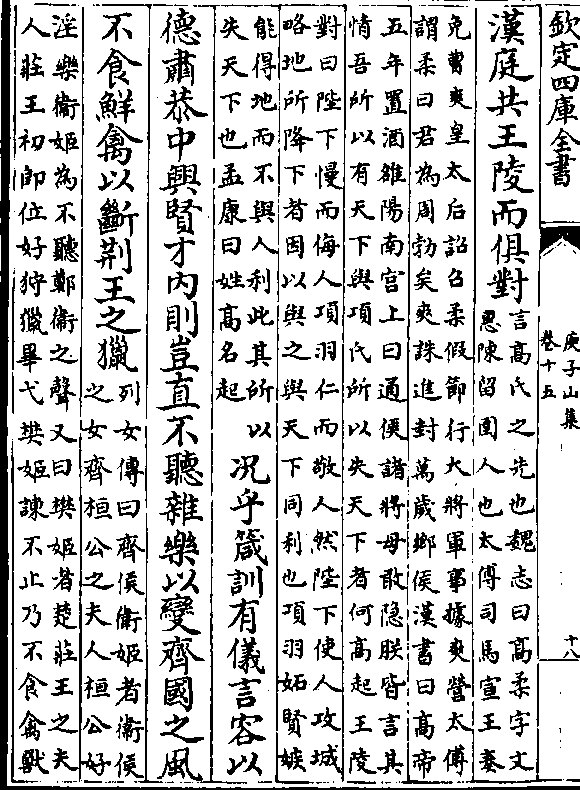 欽定四庫全書
庾子山集
卷十五
十八
漢庭共王陵而俱對
言高氏之先也魏志曰高柔字文
惠陳留圉人也太傅司馬宣王奏
免曹爽皇太后詔召柔假節行大將軍事據爽營太傅
謂柔曰君為周勃矣爽誅進封萬歲鄉侯漢書曰高帝
五年置酒雒陽南宫上曰通侯諸將母敢隐朕皆言其
情吾所以有天下與項氏所以失天下者何高起王陵
對曰陛下慢而侮人項羽仁而敬人然陛下使人攻城
略地所降下者因以與之與天下同利也項羽妬賢嫉
能得地而不與人利此其所以
失天下也孟康曰姓高名起
况乎箴訓有儀言容以
德肅恭中興賢才内則豈直不聽雜樂以變齊國之風
不食鮮禽以斷荆王之獵
列女傳曰齊侯衛姬者衛侯
之女齊桓公之夫人桓公好
淫樂衛姬為不聽鄭衛之聲又曰樊姬者楚莊王之夫
人莊王初即位好狩獵畢弋樊姬諫不止乃不食禽獸